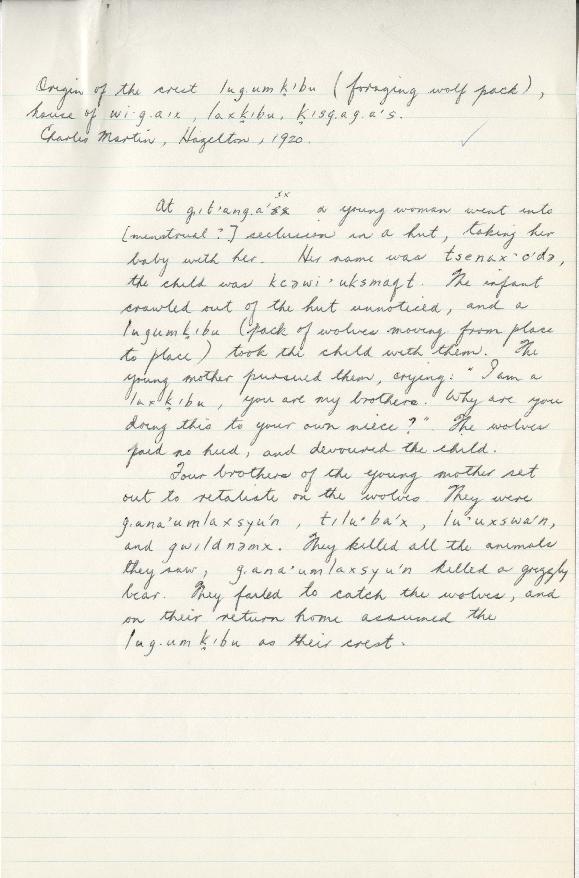 Origin of the crest lug.um ḵibu (foraging wolf pack),
house of wi·g.a·ix, laxḵibu, ḵisg.ag.a's.
Charles Martin, Hazelton, 1920.
At g.it·ang.a' a young woman went into
[menstrual?] seclusion in a hut, taking her
baby with her. Her name was tsenax·o'də,
the child was kcəwi·uksmaqt. The infant
crawled out of the hut unnoticed, and a
lugumḵibu (pack of wolves moving from place
to place) took the child with them. The
young mother pursued them, crying: "I am a
laxḵibu, you are my brothers. Why are you
doing this to your own niece?" The wolves
paid no heed, and devoured the child.
Four brothers of the young mother set
out to retaliate on the wolves. They were
g.ana'umlaxsyu'n, tilu·ba'x, lu·uxswa'n,
and gwildnəmx. They killed all the animals
they saw, g.ana'umlaxsyu'n killed a grizzly
bear. They failed to catch the wolves, and
on their return home assumed the
lug.um ḵibu as their crest.